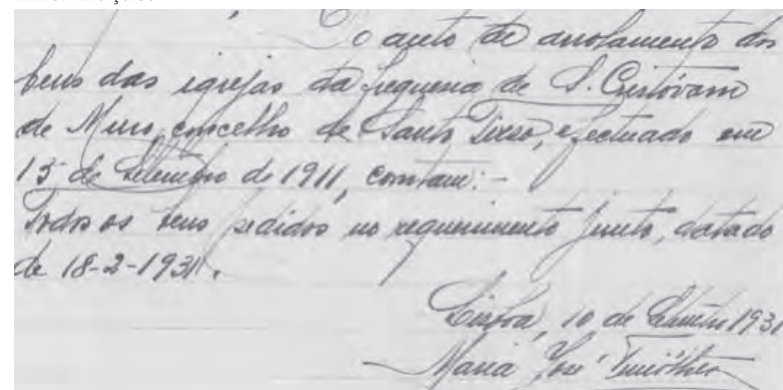 Do auto de arrolamento dos
bens das igrejas da freguesia de S. Cristóvam
de Muro, concelho de Santo Tirso, efectuado em
15 de Setembro de 1911, constam: -
Todos os bens pedidos no requerimento junto, datado
de 18-2-1931.
Lisboa, 10 de 1931
Maria José Timótheo